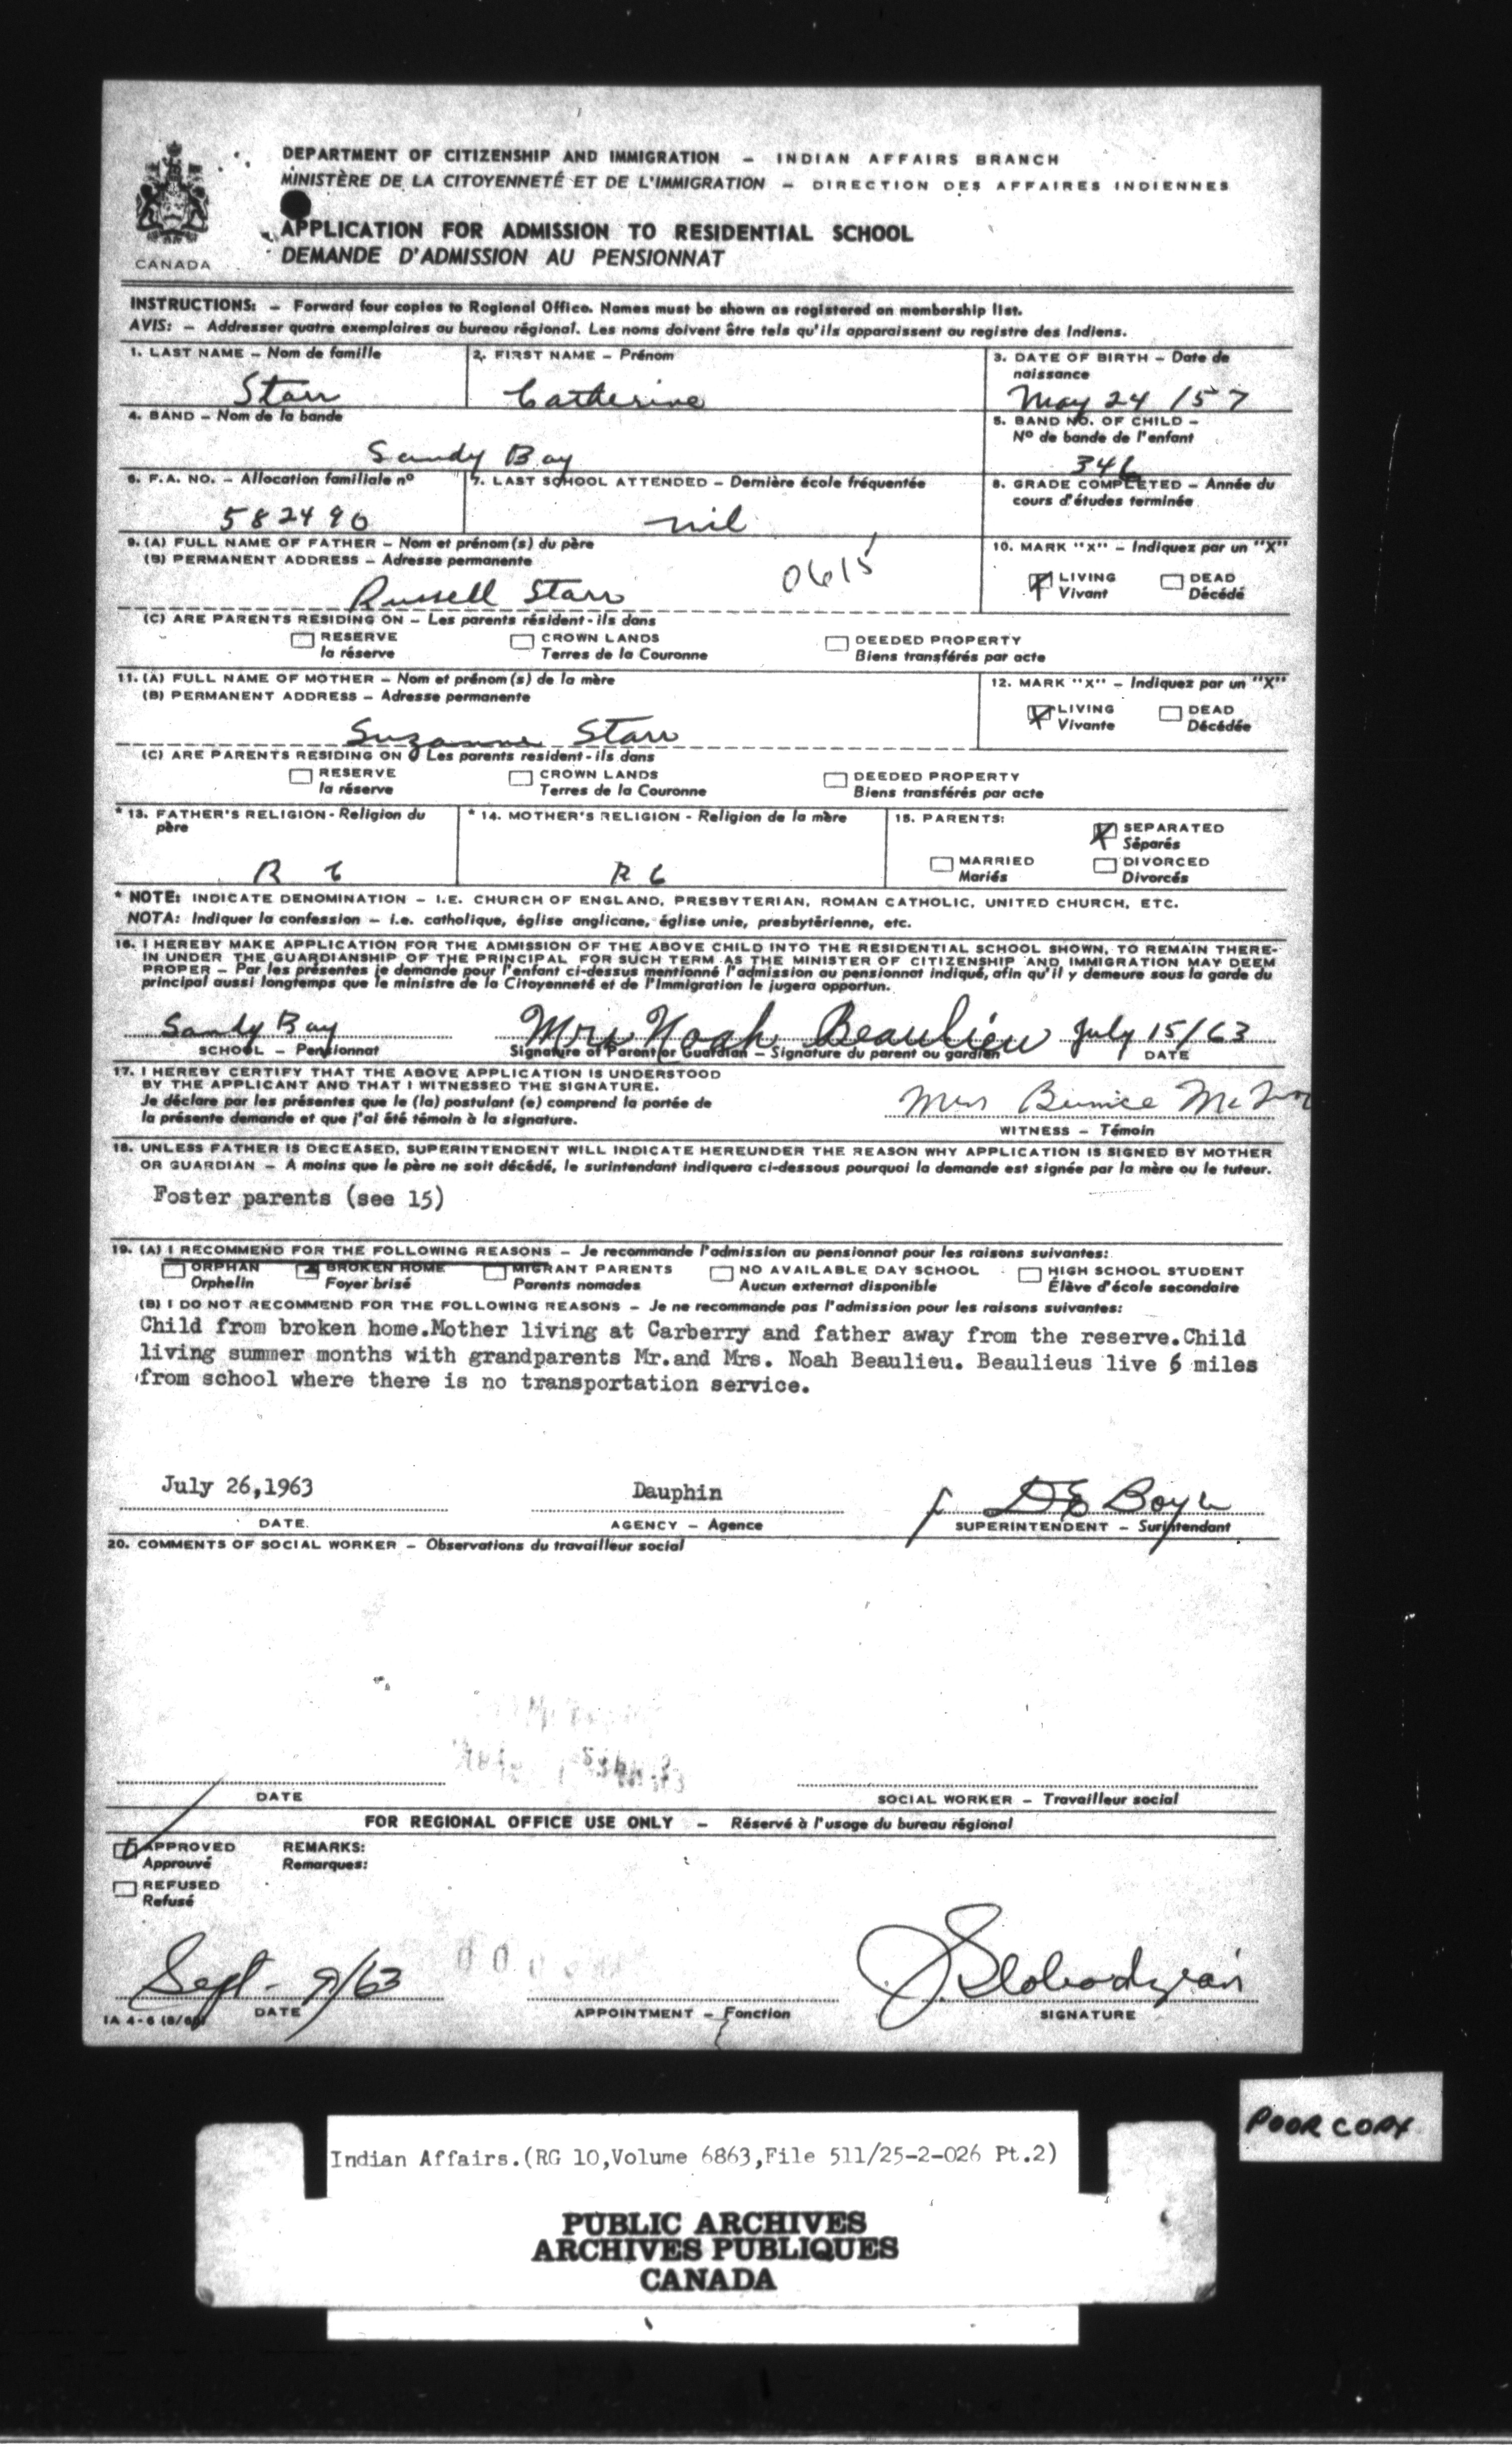 DEPARTMENT OF CITIZENSHIP AND IMMIGRATION – INDIAN AFFAIRS BRANCH
MINISTÈRE DE LA CITOYENNETÉ ET DE L'IMMIGRATION – DIRECTION DES AFFAIRES INDIENNES
APPLICATION FOR ADMISSION TO RESIDENTIAL SCHOOL
DEMANDE D'ADMISSION AU PENSIONNAT
CANADA
INSTRUCTIONS: – Forward four copies to Regional Office. Names must be shown as registered on membership list.
AVIS: – Addresser quatre exemplaires au bureau régional. Les noms doivent être tels qu'ils apparaissent au registre des Indiens.
1. LAST NAME – Nom de famille
Starr
2. FIRST NAME – Prénom
Catherine
3. DATE OF BIRTH – Date de
naissance
May 24 /57
4. BAND – Nom de la bande
Sandy Bay
5. BAND NO. OF CHILD –
Nº de bande de l'enfant
346
6. F.A. NO. – Allocation familiale nº
582490
7. LAST SCHOOL ATTENDED – Dernière école fréquentée
nil
8. GRADE COMPLETED – Année du
cours d'études terminée
9. (A) FULL NAME OF FATHER – Nom et prénom(s) du père
(B) PERMANENT ADDRESS – Adresse permanente
Russell Starr
0615
10. MARK "X" – Indiquez par un "X"
LIVING
Vivant
DEAD
Décédé
(C) ARE PARENTS RESIDING ON – Les parents résident-ils dans
RESERVE
la réserve
CROWN LANDS
Terres de la Couronne
DEEDED PROPERTY
Biens transférés par acte
11. (A) FULL NAME OF MOTHER – Nom et prénom(s) de la mère
(B) PERMANENT ADDRESS – Adresse permanente
Suzanne Starr
12. MARK "X" – Indiquez par un "X"
LIVING
Vivante
DEAD
Décédée
(C) ARE PARENTS RESIDING ON Les parents resident-ils dans
RESERVE
la réserve
CROWN LANDS
Terres de la Couronne
DEEDED PROPERTY
Biens transférés par acte
* 13. FATHER'S RELIGION - Religion du
père
R C
* 14. MOTHER'S RELIGION - Religion de la mère
R C
15. PARENTS:
SEPARATED
Séparés
MARRIED
Mariés
DIVORCED
Divorcés
* NOTE: INDICATE DENOMINATION – I.E. CHURCH OF ENGLAND, PRESBYTERIAN, ROMAN CATHOLIC, UNITED CHURCH, ETC.
NOTA: Indiquer la confession – i.e. catholique, église anglicane, église unie, presbytérienne, etc.
16. I HEREBY MAKE APPLICATION FOR THE ADMISSION OF THE ABOVE CHILD INTO THE RESIDENTIAL SCHOOL SHOWN, TO REMAIN THERE-
IN UNDER THE GUARDIANSHIP OF THE PRINCIPAL FOR SUCH TERM AS THE MINISTER OF CITIZENSHIP AND IMMIGRATION MAY DEEM
PROPER – Par les présentes je demande pour l'enfant ci-dessus mentionné l'admission au pensionnat indiqué, afin qu'il y demeure sous la garde du
principal aussi longtemps que le ministre de la Citoyenneté et de l'Immigration le jugera opportun.
Sandy Bay
Mrs Noah Beaulieu
July 15/63
SCHOOL – Pensionnat
Signature of Parent or Guardian – Signature du parent ou gardien
DATE
17. I HEREBY CERTIFY THAT THE ABOVE APPLICATION IS UNDERSTOOD
BY THE APPLICANT AND THAT I WITNESSED THE SIGNATURE.
Je déclare par les présentes que le (la) postulant (e) comprend la portée de
la présente demande et que j'ai été témoin à la signature.
Mrs
WITNESS – Témoin
18. UNLESS FATHER IS DECEASED, SUPERINTENDENT WILL INDICATE HEREUNDER THE REASON WHY APPLICATION IS SIGNED BY MOTHER
OR GUARDIAN – A moins que le père ne soit décédé, le surintendant indiquera ci-dessous pourquoi la demande est signée par la mère ou le tuteur.
Foster parents (see 15)
19. (A) I RECOMMEND FOR THE FOLLOWING REASONS – Je recommande l'admission au pensionnat pour les raisons suivantes:
ORPHAN
Orphelin
BROKEN HOME
Foyer brisé
MIGRANT PARENTS
Parents nomades
NO AVAILABLE DAY SCHOOL
Aucun externat disponible
HIGH SCHOOL STUDENT
Élève d'école secondaire
(B) I DO NOT RECOMMEND FOR THE FOLLOWING REASONS – Je ne recommande pas l'admission pour les raisons suivantes:
Child from broken home.Mother living at Carberry and father away from the reserve.Child
living summer months with grandparents Mr.and Mrs. Noah Beaulieu. Beaulieus live 6 miles
from school where there is no transportation service.
July 26,1963
Dauphin
D E Boyle
DATE
AGENCY – Agence
SUPERINTENDENT – Surintendant
20. COMMENTS OF SOCIAL WORKER – Observations du travailleur social
DATE
SOCIAL WORKER – Travailleur social
FOR REGIONAL OFFICE USE ONLY – Réservé à l'usage du bureau régional
APPROVED
Approuvé
REMARKS:
Remarques:
REFUSED
Refusé
Sept. 9/63
J. Slobodzian
DATE
APPOINTMENT – Fonction
SIGNATURE
POOR COPY
Indian Affairs.(RG 10,Volume 6863,File 511/25-2-026 Pt.2)
PUBLIC ARCHIVES
ARCHIVES PUBLIQUES
CANADA